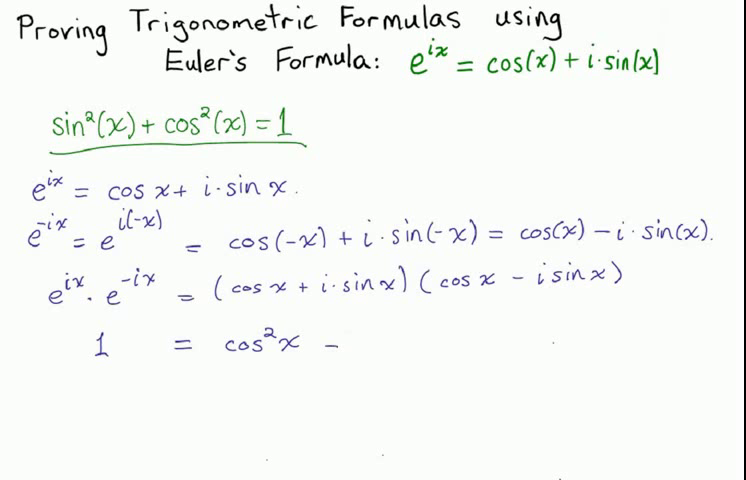 Proving Trigonometric Formulas using
Euler's Formula: e^{ix} = cos(x) + i·sin(x)
sin²(x) + cos²(x) = 1
e^{ix} = cos x + i·sin x.
e^{-ix} = e^{i(-x)} = cos(-x) + i·sin(-x) = cos(x) - i·sin(x).
e^{ix} · e^{-ix} = (cos x + i·sin x) (cos x - i sin x)
1 = cos²x -